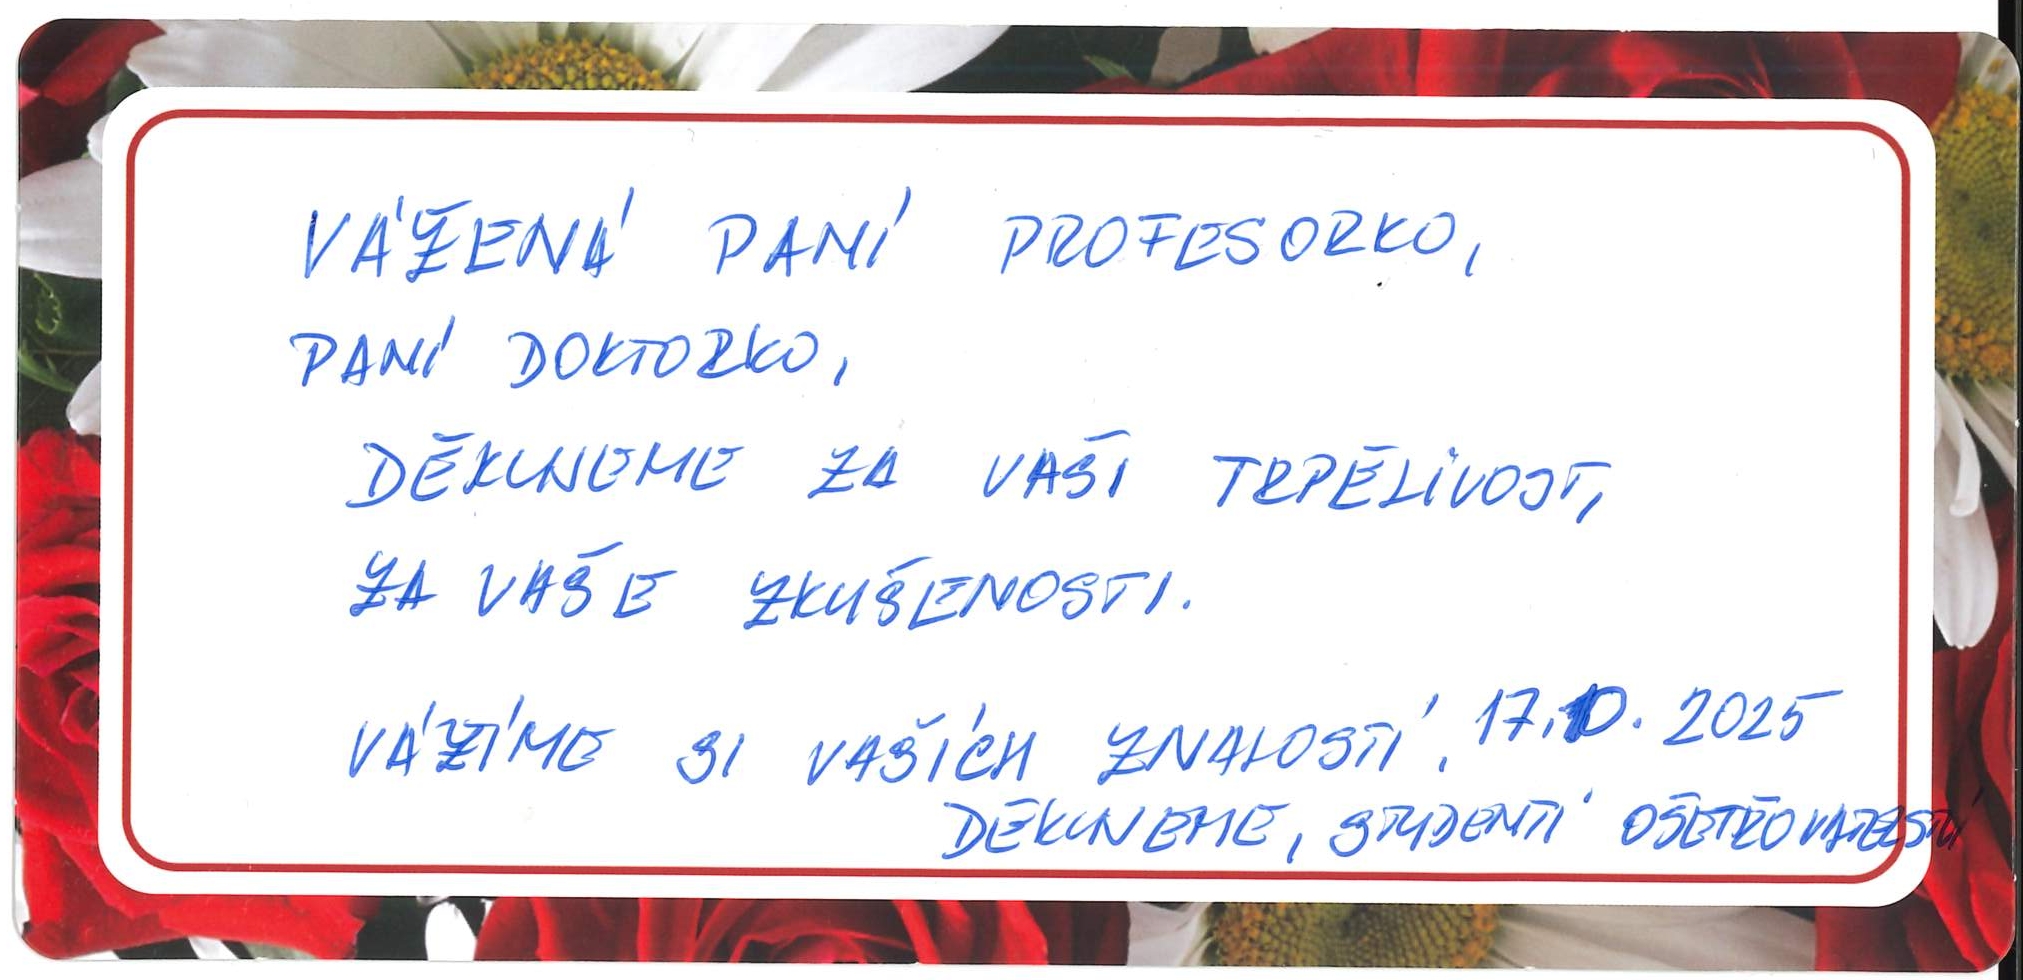 VÁŽENÁ PANÍ PROFESORKO,
PANÍ DOKTORKO,
DĚKUJEME ZA VAŠI TRPĚLIVOST,
ZA VAŠE ZKUŠENOSTI.
VÁŽÍME SI VAŠÍCH ZNALOSTÍ. 17.10. 2025
DĚKUJEME, STUDENTI OŠETŘOVATELSTVÍ